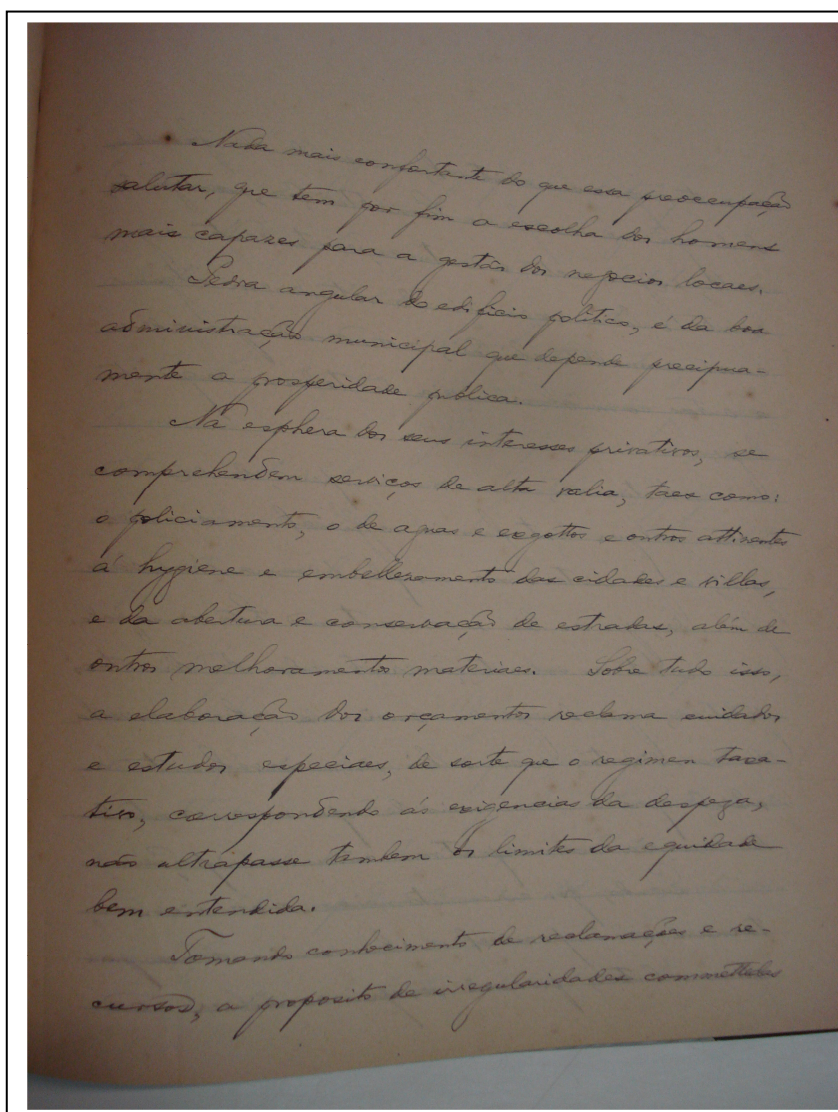 Nada mais confortante do que essa preoccupação
salutar, que tem por fim a escolha dos homens
mais capazes para a gestão dos negocios locaes.
Pedra angular do edificio politico, é da boa
administração municipal que depende precipua-
mente a prosperidade publica.
Na esphera dos seus interesses privativos, se
comprehendem serviços de alta valia, taes como:
o policiamento, o de aguas e exgottos e outros attinentes
á hygiene e embellezamento das cidades e villas,
e da abertura e conservação de estradas, além de
outros melhoramentos materiaes. Sobre tudo isso,
a elaboração dos orçamentos reclama cuidados
e estudos especiaes, de sorte que o regimen taxa-
tivo, correspondendo ás exigencias da despeza,
não ultrapasse tambem os limites da equidade
bem entendida.
Tomando conhecimento de reclamações e re-
cursos, a proposito de irregularidades commettidas